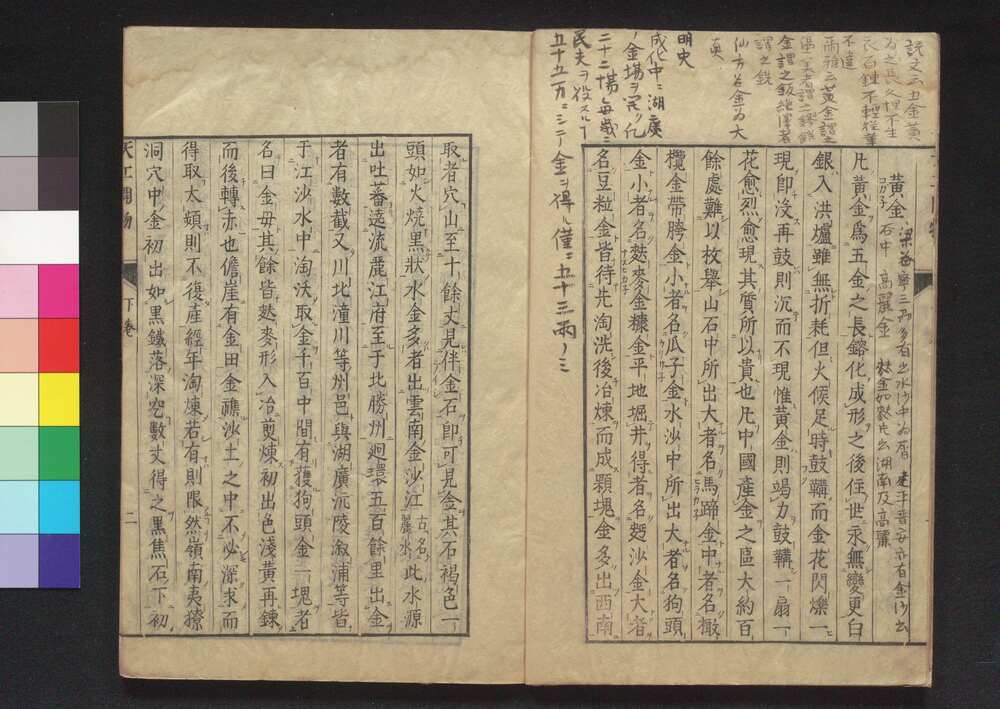 説文云五金黃
為之長久埋不生
衣百錬不輕從革
不違
爾雅云黃金謂之
金謂之鈑絶澤者
謂之銑
仙方名金為大
真
明史
成化中ニ湖廣
ノ金場ヲ開ク凡
二十二場毎歳ニ
民夫ヲ役スルヿ
五十五万ニシテ金ヲ得ル僅ニ五十三兩ノミ
黃金 梁益寧三州多有出水沙中為屑 建平晉安亦有金沙出
石中 高麗金 麩金如麩片出湖南及高麗
凡黃金爲五金之長鎔化成形之後住世永無變更白
銀入洪爐雖無折耗但火候足時鼓鞲而金花閃爍一
現卽沒再鼓則沉而不現惟黃金則竭力鼓鞲一扇一
花愈烈愈現其質所以貴也凡中國產金之區大約百
餘處難以枚擧山石中所出大者名馬蹄金中者名橄
欖金帶胯金小者名瓜子金水沙中所出大者名狗頭
金小者名麩麥金糠金平地堀井得者名麪沙金大者
名豆粒金皆待先淘洗後冶煉而成顆塊金多出西南
取者穴山至十餘丈見伴金石卽可見金其石褐色一
頭如火燒黑狀水金多者出雲南金沙江古名麗水此水源
出吐蕃遶流麗江府至于北勝州迴環五百餘里出金
者有數截又川北潼川等州邑與湖廣沅陵漵浦等皆
于江沙水中淘沃取金千百中間有獲狗頭金一塊者
名曰金母其餘皆麩麥形入冶煎煉初出色淺黃再鍊
而後轉赤也儋崖有金田金襍沙土之中不必深求而
得取太頻則不復產經年淘煉若有則限然嶺南夷獠
洞穴中金初出如黑鐵落深穵數丈得之黑焦石下初
天工開物 下卷 二